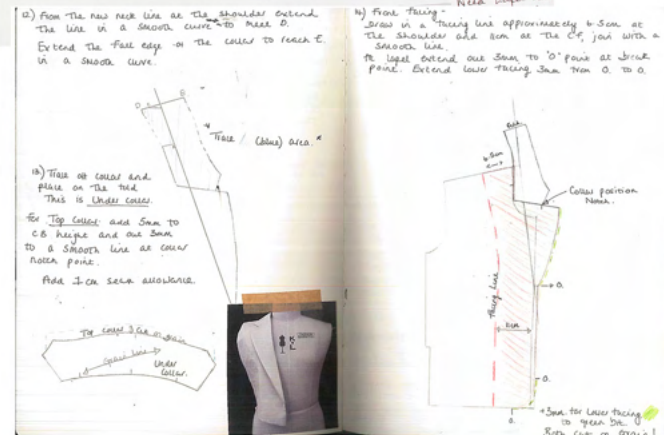 12) From the new neck line at the shoulder extend
the line in a smooth curve to meet D.
Extend the fall edge of the collar to reach E.
in a smooth curve.
D
E
Trace (blue) area. *
13) Trace off collar and
place on the fold
This is Under collar.
For Top Collar add 5mm to
CB height and out 3mm
to a smooth line at collar
notch point.
Add 1cm seam allowance.
Top collar
grain line
Under
Collar.
14) Front facing -
Draw in a facing line approximately 4.5cm at
the shoulder and 8cm at the CF, join with a
smooth line.
At lapel extend out 3mm to "0" point at break
point. Extend lower facing 3mm from 0. to 0.
4.5cm
Collar position
Notch.
facing line
0.
0.
0.
+3mm for lower facing
to green